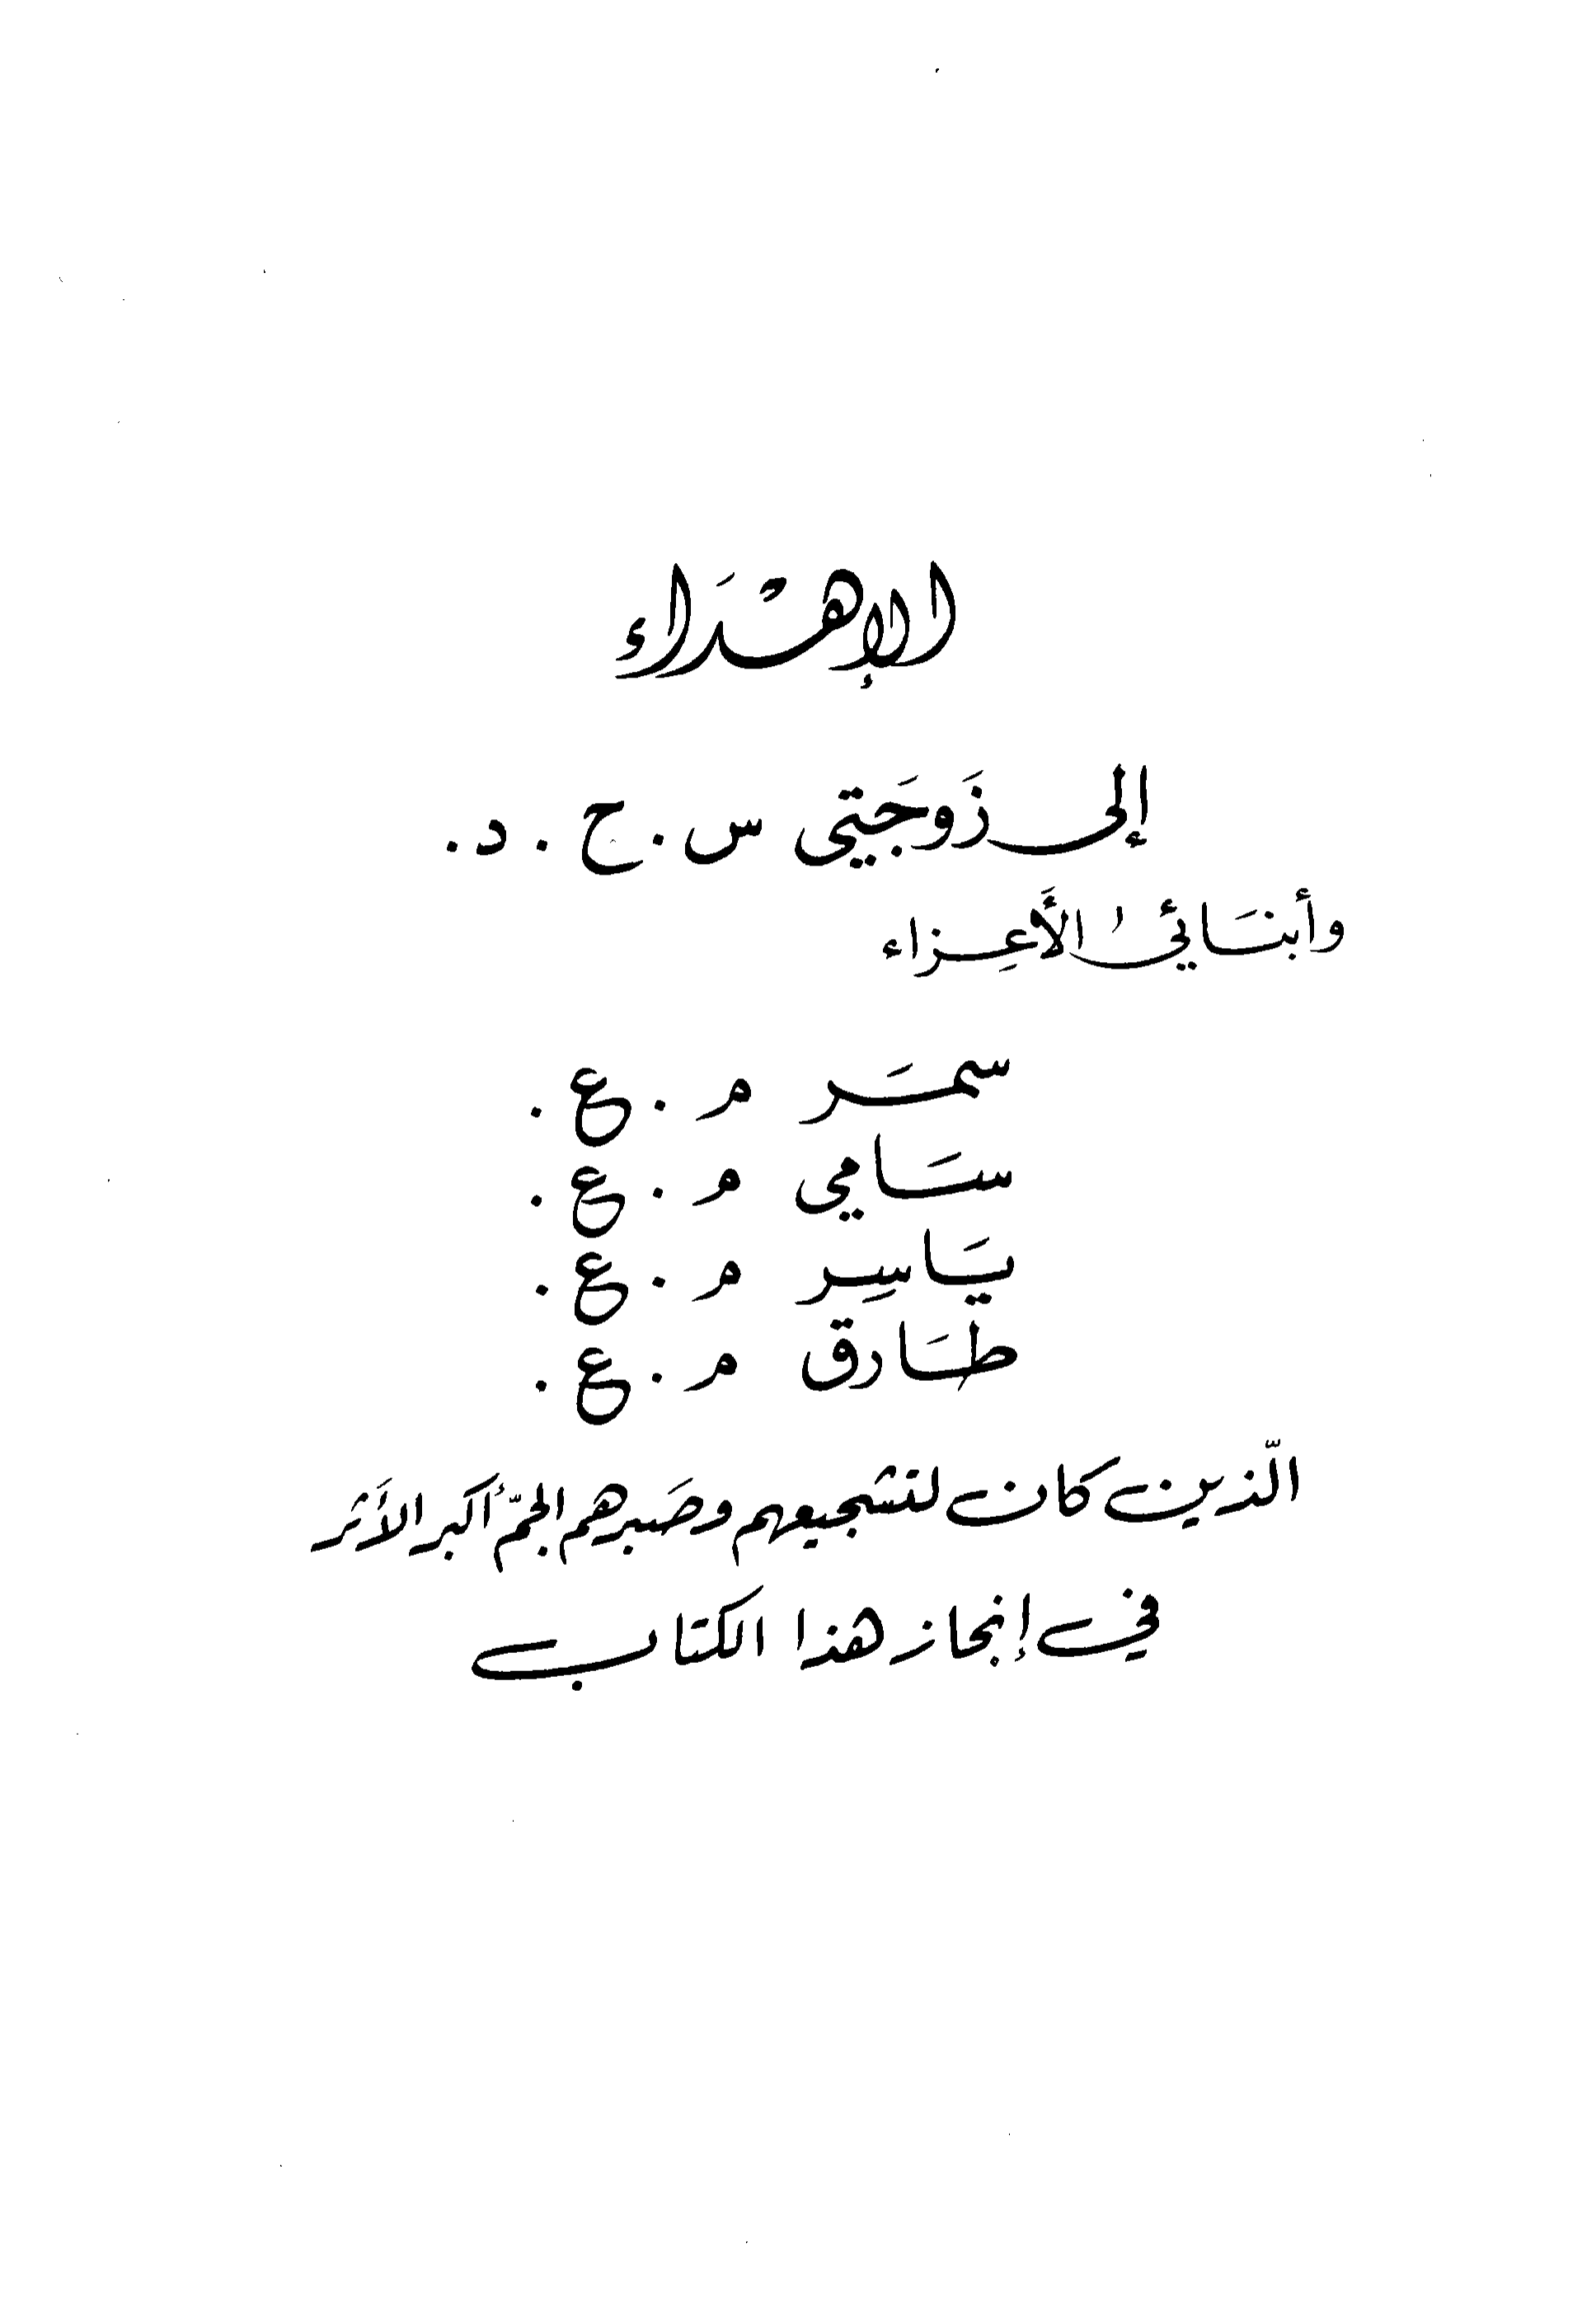 الإهْدَاء
إلى زَوجَتي س . ج . د .
وأبنَائي الأَعِزاء
سمَر م . ع .
سَامي م . ع .
يَاسِر م . ع .
طَارق م . ع .
الّذين كان لتشجيعهم وصَبرهم الجمّ أكبر الأثَر
في إنجاز هذا الكتاب